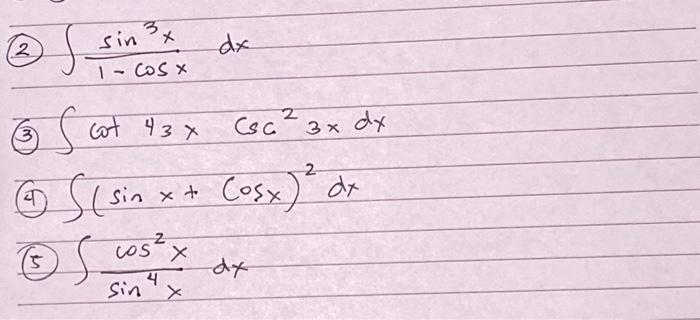 ② ∫ sin³x / 1 - cos x dx
③ ∫ cot 43x csc² 3x dx
④ ∫(sin x + cosx)² dx
⑤ ∫ cos²x / sin⁴x dx